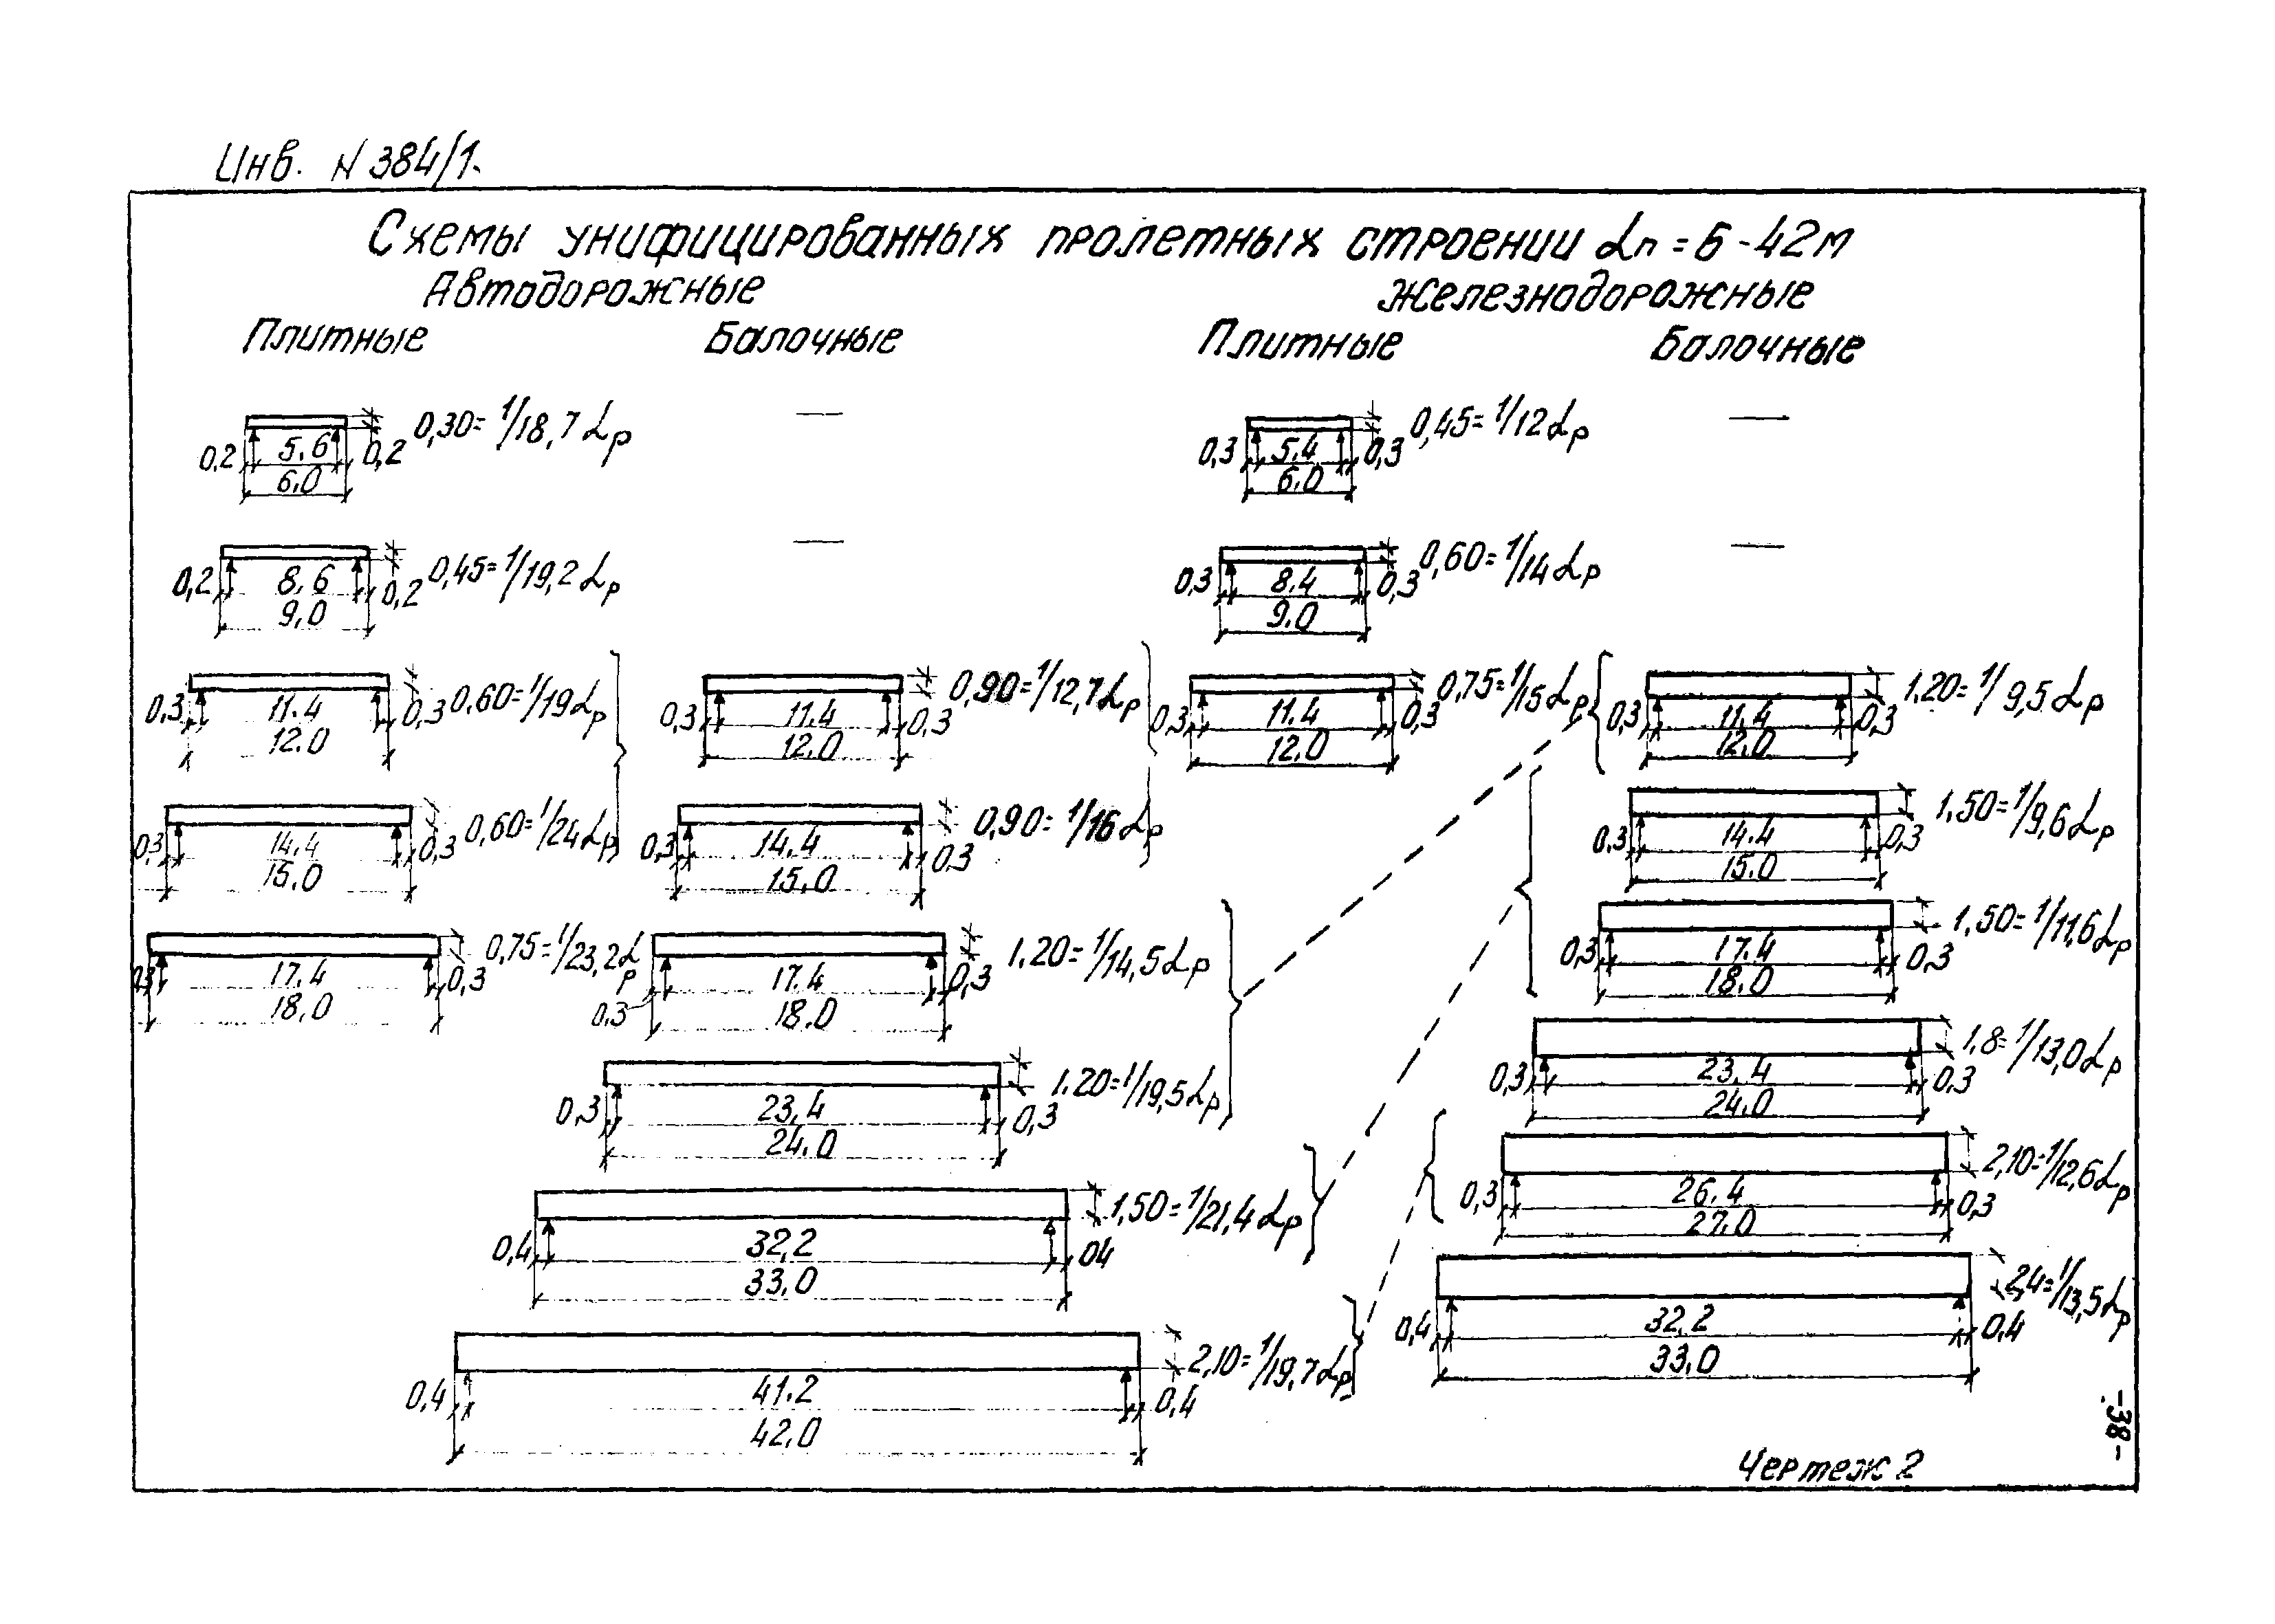 Инв. N 384/1.
Схемы унифицированных пролетных строении Lп = 6 - 42м
Автодорожные
Железнодорожные
Плитные
Балочные
Плитные
Балочные
0,30= 1/18,7 Lр
0,2 5,6 0,2
6,0
—
0,45= 1/12 Lр
0,3 5,4 0,3
6,0
—
0,45= 1/19,2 Lр
0,2 8,6 0,2
9,0
—
0,60= 1/14 Lр
0,3 8,4 0,3
9,0
—
0,60= 1/19 Lр
0,3 11.4 0,3
12.0
0,90= 1/12,7 Lр
0,3 11.4 0,3
12.0
0,75= 1/15 Lр
0,3 11.4 0,3
12.0
1.20= 1/9,5 Lр
0,3 11.4 0,3
12.0
0,60= 1/24 Lр
0,3 14.4 0,3
15.0
0,90= 1/16 Lр
0,3 14.4 0,3
15.0
1.50= 1/9,6 Lр
0,3 14.4 0,3
15.0
0,75= 1/23,2 Lр
0,3 17.4 0,3
18.0
1.20= 1/14,5 Lр
0,3 17.4 0,3
18.0
1,50= 1/11,6 Lр
0,3 17.4 0,3
18.0
1.20= 1/19,5 Lр
0,3 23,4 0,3
24.0
1,8= 1/13,0 Lр
0,3 23,4 0,3
24.0
1,50= 1/21,4 Lр
0,4 32,2 04
33,0
2,10= 1/12,6 Lр
0,3 26.4 0,3
27.0
2,10= 1/19,7 Lр
0,4 41.2 0,4
42,0
2,4= 1/13,5 Lр
0,4 32,2 0,4
33,0
-38-
Чертеж 2